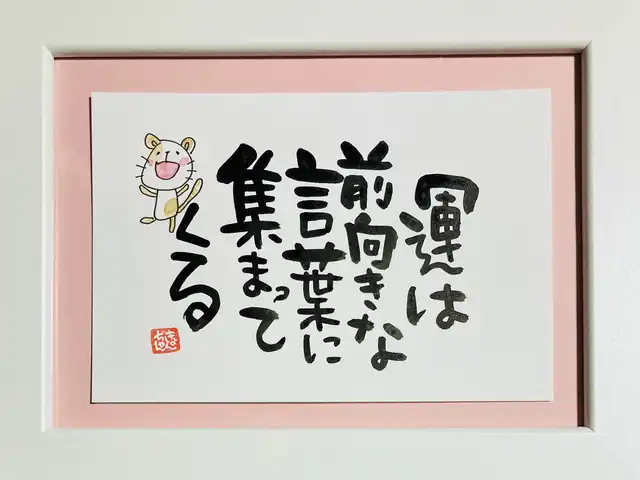 運は
前向きな
言葉に
集まって
くる